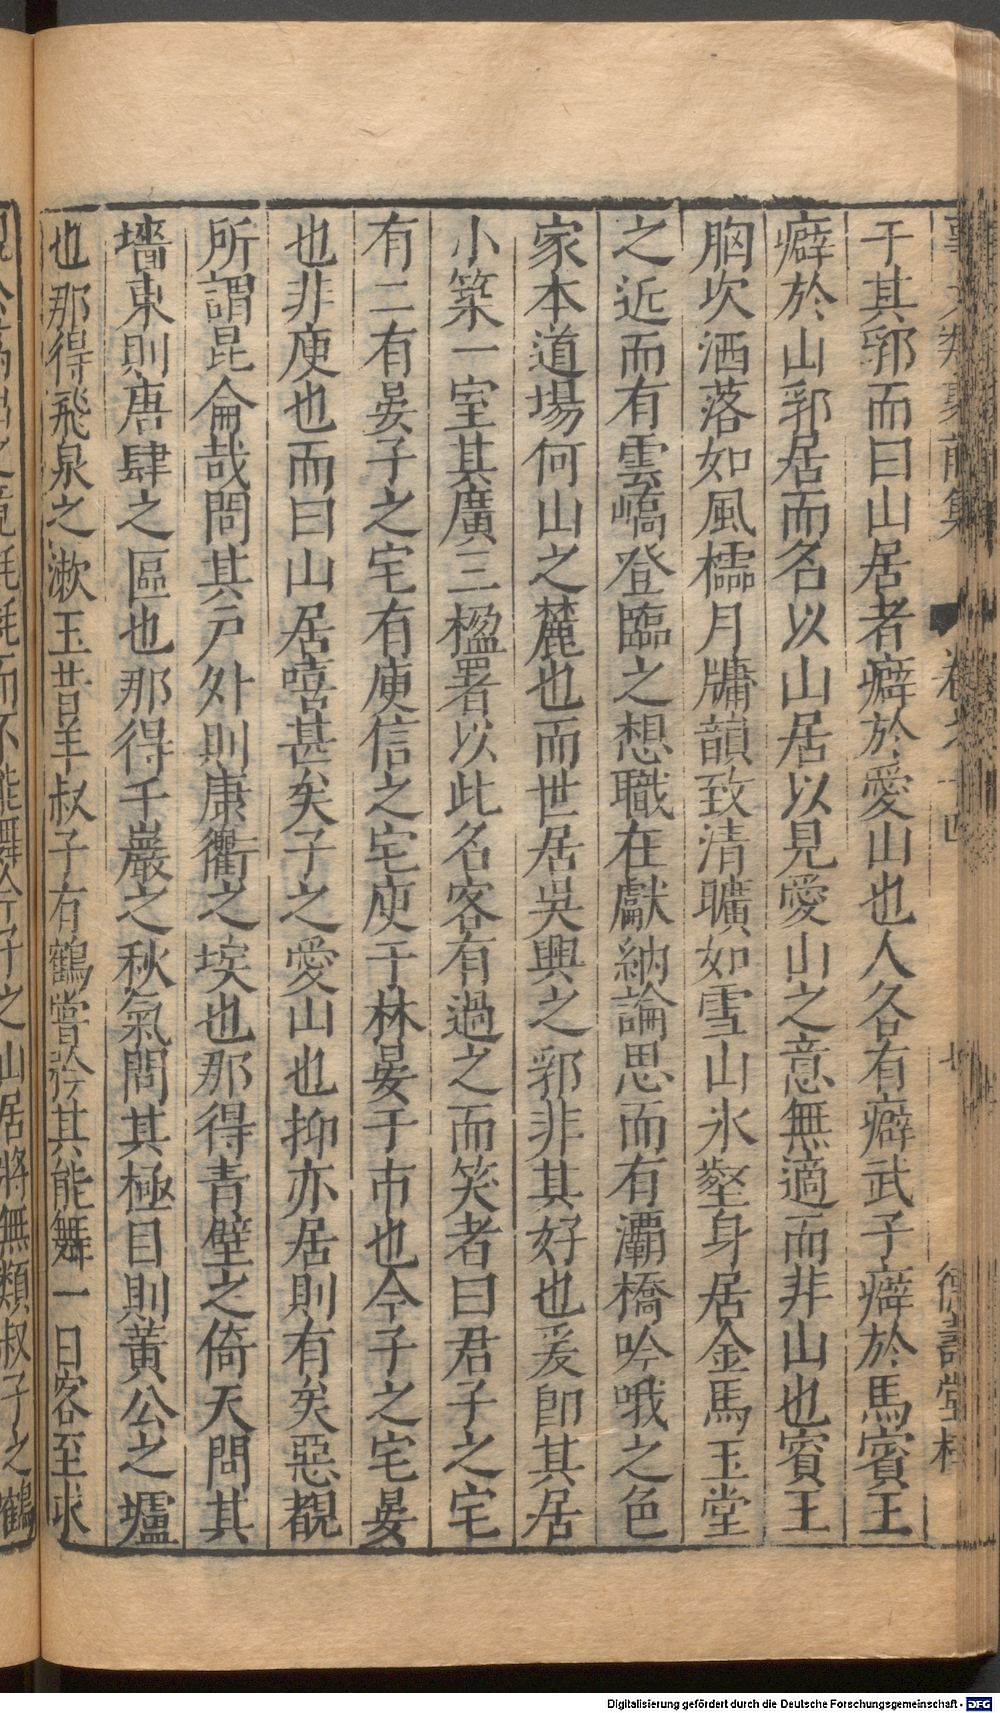 于其郛而曰山居者癖於愛山也人各有癖武子癖於馬賓王
癖於山郛居而名以山居以見愛山之意無適而非山也賓王
胸次洒落如風櫺月牖韻致清曠如雪山氷壑身居金馬玉堂
之近而有雲嶠登臨之想職在獻納論思而有灞橋吟哦之色
家本道場何山之麓也而世居吳興之郛非其好也爰即其居
小築一室其廣三楹署以此名客有過之而笑者曰君子之宅
有二有晏子之宅有庾信之宅庾于林晏于市也今子之宅晏
也非庾也而曰山居嘻甚矣子之愛山也抑亦居則有矣惡覩
所謂昆侖哉問其戸外則康衢之埃也那得青壁之倚天問其
墻東則唐肆之區也那得千巖之秋氣問其極目則黃公之壚
也那得飛泉之漱玉昔羊叔子有鶴嘗矜其能舞一日客至求
之山居將無類叔子之鶴
德壽堂梓
Digitalisierung gefördert durch die Deutsche Forschungsgemeinschaft - DFG